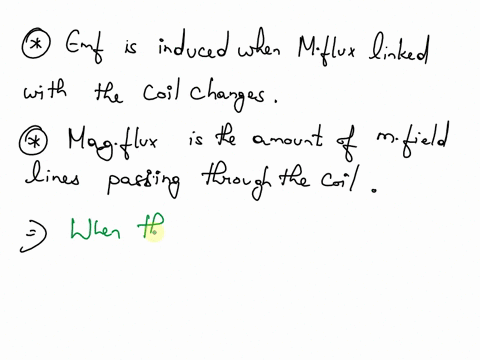 * Emf is induced when M.flux linked
with the coil changes.
* Mag.flux is the amount of m.field
lines passing through the coil.
⇒ When th